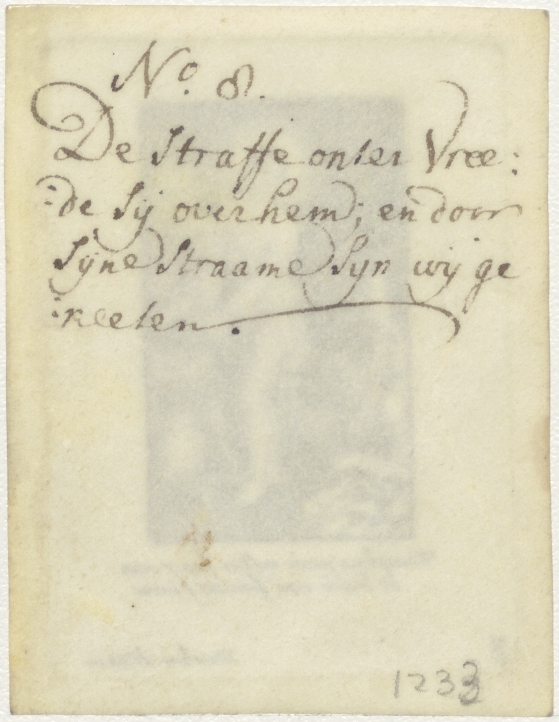 No. 8.
De straffe onser Vree:
:de sy over hem; en door
syne straame syn wy ge
:neesen.
1233